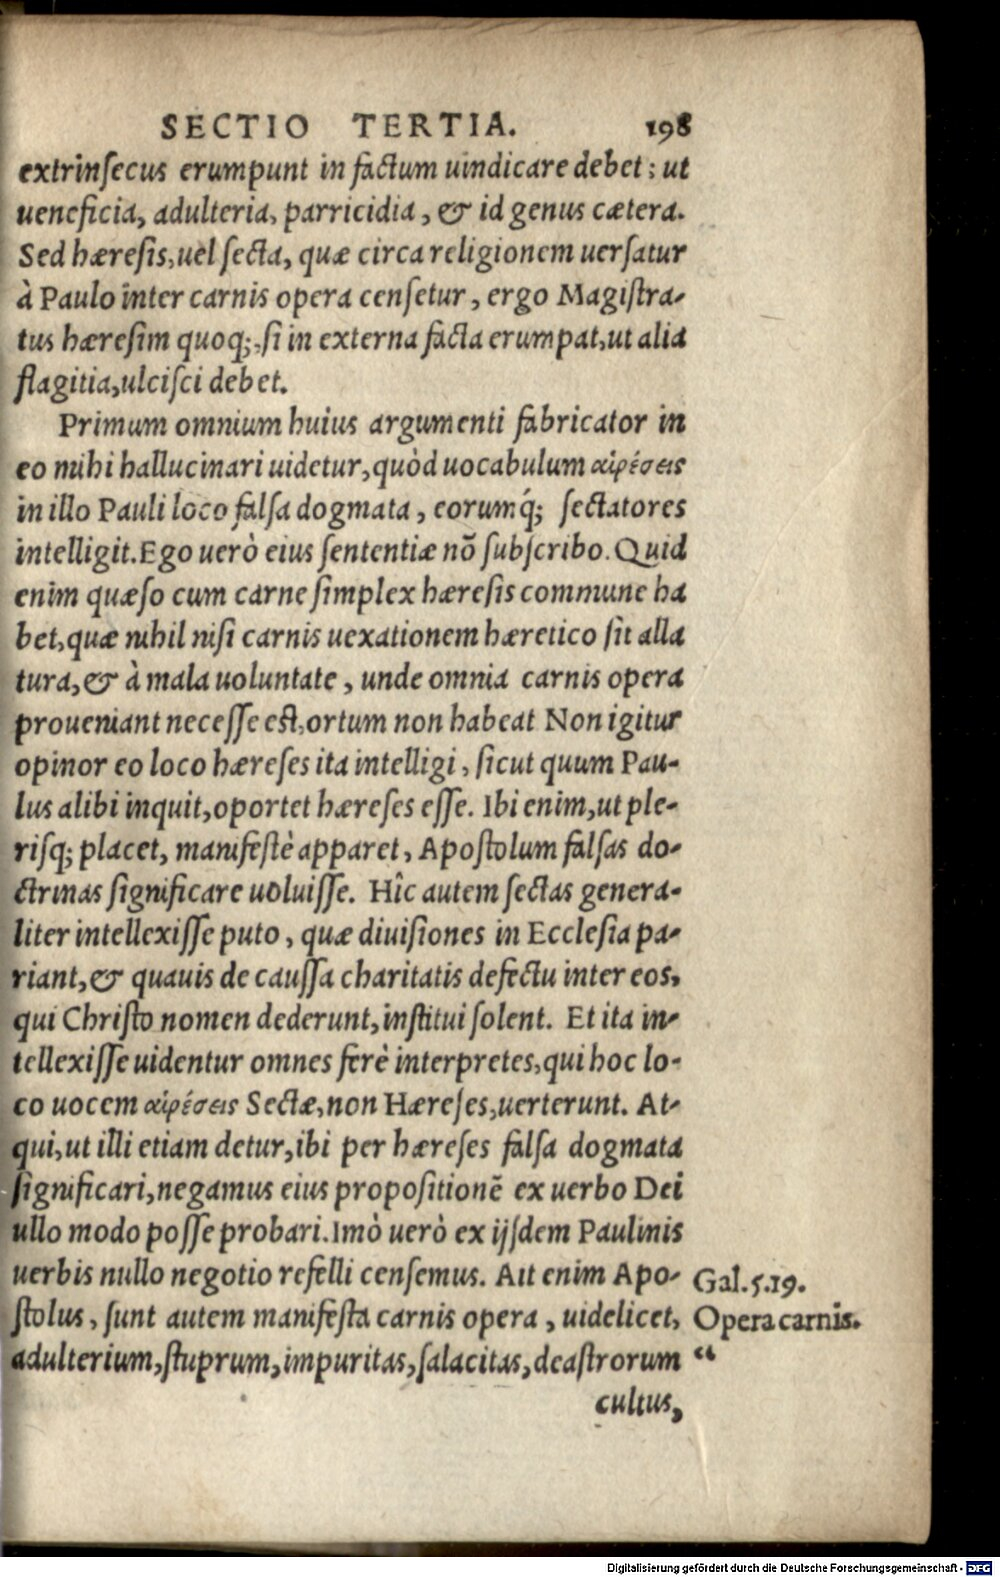 SECTIO TERTIA. 198
extrinſecus erumpunt in factum uindicare debet; ut
ueneficia, adulteria, parricidia, & id genus cætera.
Sed hæreſis, uel ſecta, quæ circa religionem uerſatur
à Paulo inter carnis opera cenſetur, ergo Magiſtra-
tus hæreſim quoq;, ſi in externa facta erumpat, ut alia
flagitia, ulciſci debet.
Primum omnium huius argumenti fabricator in
eo mihi hallucinari uidetur, quòd uocabulum αἱρέσεις
in illo Pauli loco falſa dogmata, eorumq́; ſectatores
intelligit. Ego uerò eius ſententiæ nõ ſubſcribo. Quid
enim quæſo cum carne ſimplex hæreſis commune ha
bet, quæ nihil niſi carnis uexationem hæretico ſit alla
tura, & à mala uoluntate, unde omnia carnis opera
proueniant neceſſe eſt, ortum non habeat Non igitur
opinor eo loco hæreſes ita intelligi, ſicut quum Pau-
lus alibi inquit, oportet hæreſes eſſe. Ibi enim, ut ple-
riſq; placet, manifeſtè apparet, Apoſtolum falſas do-
ctrinas ſignificare uoluiſſe. Hîc autem ſectas genera-
liter intellexiſſe puto, quæ diuiſiones in Eccleſia pa-
riant, & quauis de cauſſa charitatis defectu inter eos,
qui Chriſto nomen dederunt, inſtitui ſolent. Et ita in-
tellexiſſe uidentur omnes ferè interpretes, qui hoc lo-
co uocem αἱρέσεις Sectæ, non Hæreſes, uerterunt. At-
qui, ut illi etiam detur, ibi per hæreſes falſa dogmata
ſignificari, negamus eius propoſitionẽ ex uerbo Dei
ullo modo poſſe probari. Imò uerò ex ijſdem Paulinis
uerbis nullo negotio refelli cenſemus. Ait enim Apo- Gal. 5. 19.
ſtolus, ſunt autem manifeſta carnis opera, uidelicet, Opera carnis.
adulterium, ſtuprum, impuritas, ſalacitas, deaſtrorum “
cultus,
Digitalisierung gefördert durch die Deutsche Forschungsgemeinschaft - DFG